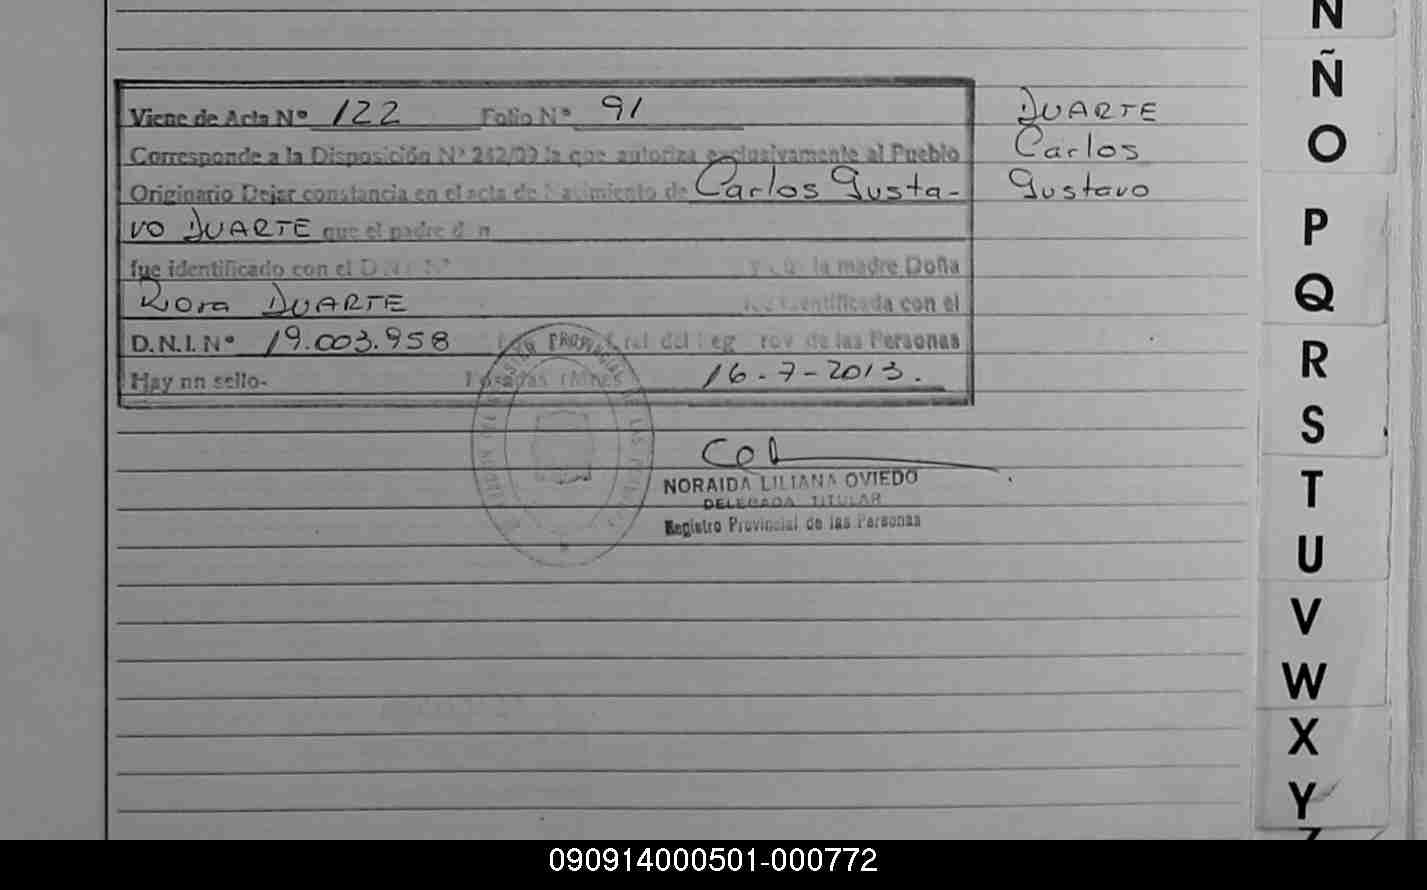 Viene de Acta Nº 122 Folio Nº 91
Corresponde a la Disposición Nº 242/09 la que autoriza exclusivamente al Pueblo
Originario Dejar constancia en el acta de Nacimiento de Carlos Gusta-
vo DUARTE que el padre don
fue identificado con el D.N.I. Nº y que la madre Doña
DUARTE fue identificada con el
D.N.I. Nº 19.003.958 del Reg Prov de las Personas
Hay un sello- Posadas Mnes 16-7-2013.
DUARTE
Carlos
Gustavo
NORAIDA LILIANA OVIEDO
DELEGADA TITULAR
Registro Provincial de las Personas
N
Ñ
O
P
Q
R
S
T
U
V
W
X
Y
090914000501-000772